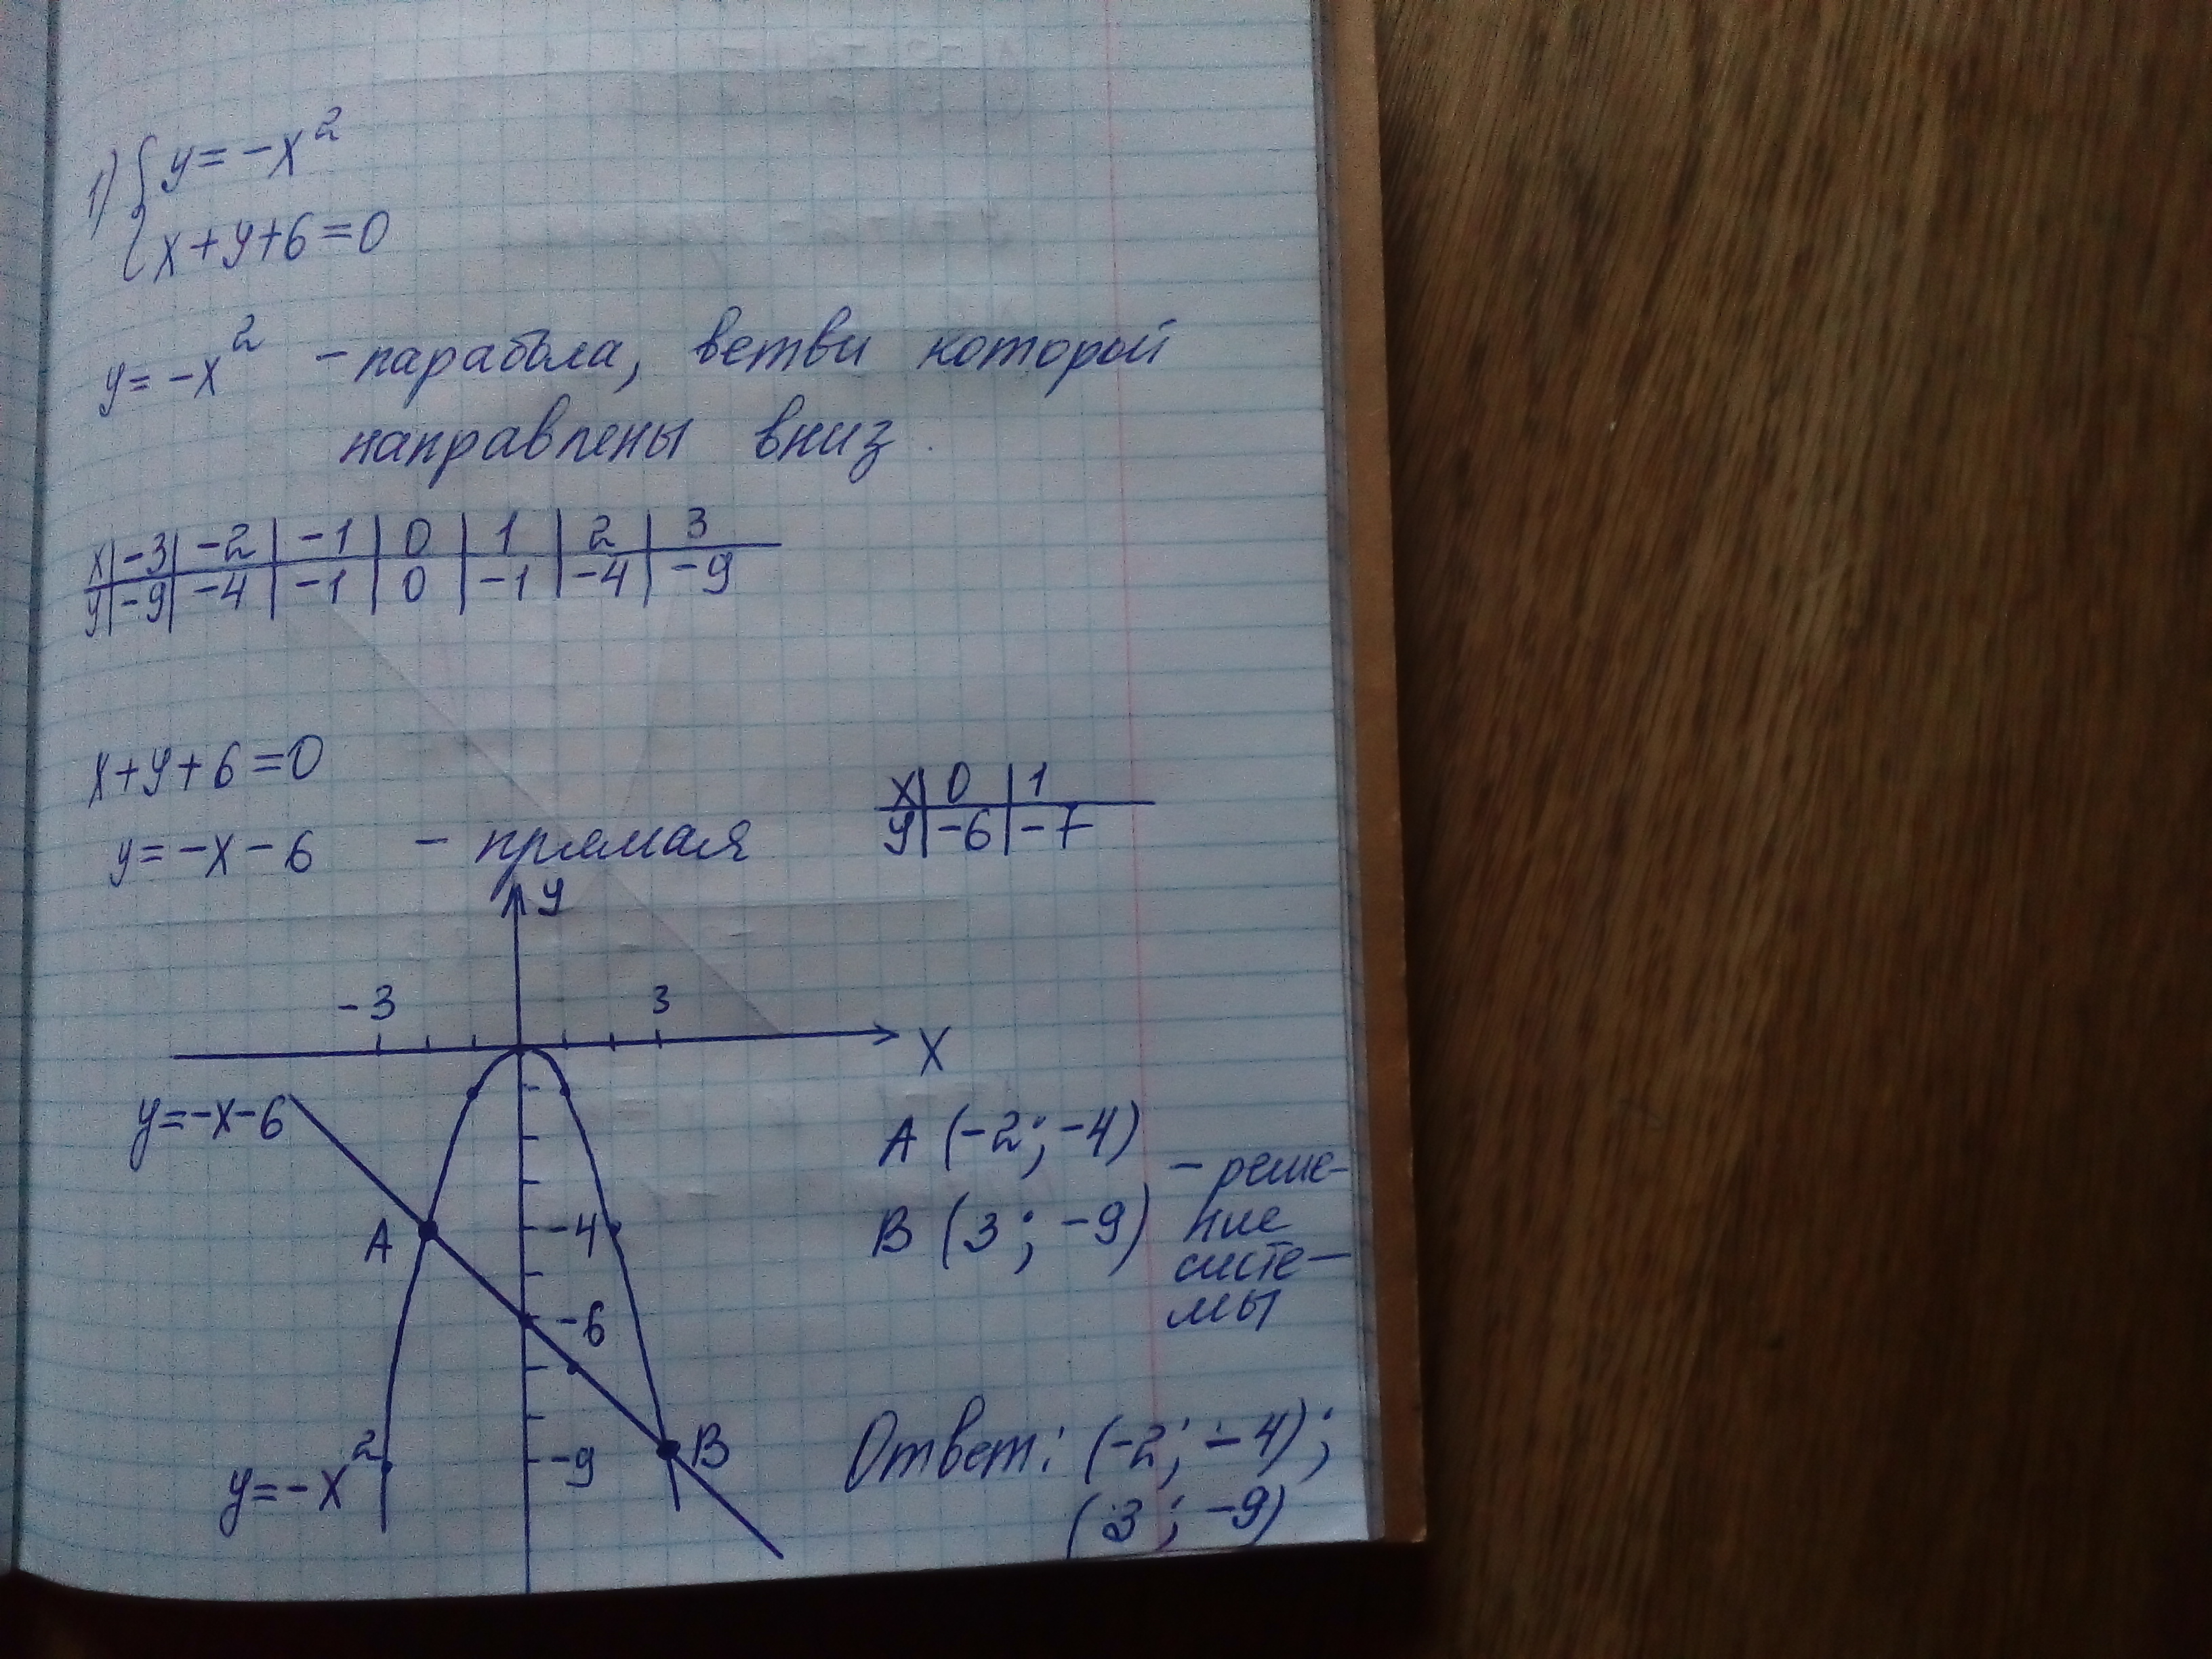 1) { y = -x²
x + y + 6 = 0
y = -x² - парабола, ветви которой
направлены вниз.
x | -3 | -2 | -1 | 0 | 1 | 2 | 3
y | -9 | -4 | -1 | 0 | -1 | -4 | -9
x + y + 6 = 0
y = -x - 6 - прямая
x | 0 | 1
y | -6 | -7
y
-3 3
x
y = -x - 6
A
-4
-6
-9
B
y = -x²
A (-2; -4)
B (3; -9)
- реше-
ние
систе-
мы
Ответ: (-2; -4);
(3; -9)